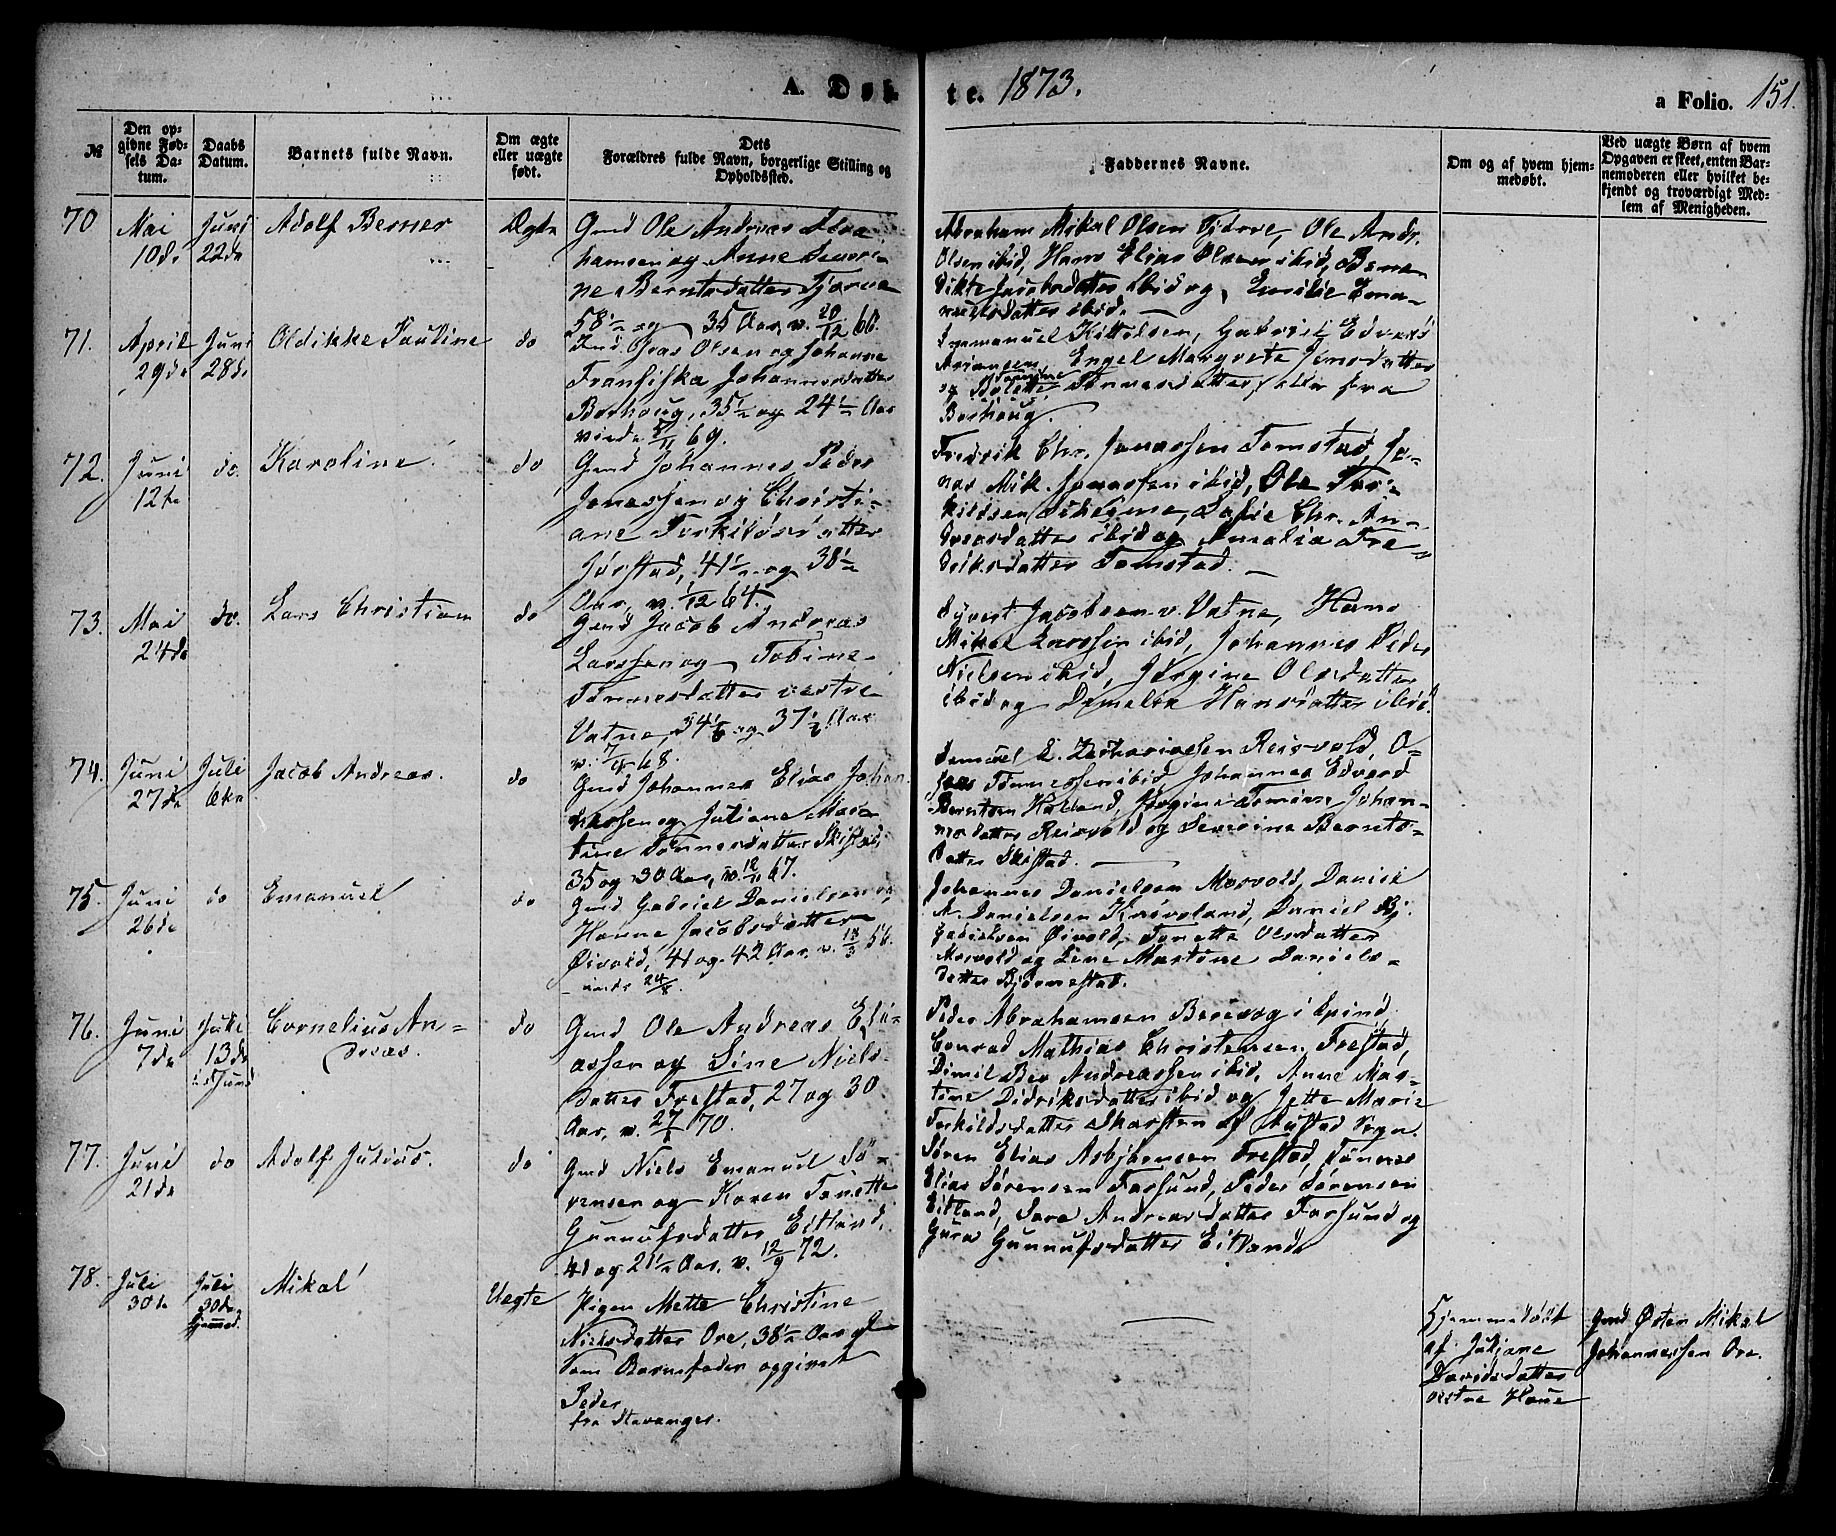 A. Døb
te. 1873.
a Folio. 151.
№
Den op-
givne Fød-
sels Da-
tum.
Daabs
Datum.
Barnets fulde Navn.
Om ægte
eller uægte
født.
Dets
Forældres fulde Navn, borgerlige Stilling og
Opholdssted.
Faddernes Navne.
Om og af hvem hjem-
medøbt.
Ved uægte Børn af hvem
Opgaven er skeet, enten Bar-
nemoderen eller hvilket be-
kjendt og troværdigt Med-
lem af Menigheden.
70
Mai
10de
Juni
22de
Adolf Berner
Ægte
Gmd Ole Andreas Abra-
hamsen og Anne Severi-
ne Berntsdatter Tjørve
58½ og 35 Aar, v. 20/12 60.
Abraham Mikal Olsen Tjørve, Ole Andr.
Olsen ibid, Hans Elias Olsen ibid, Bene-
dikte Jacobsdatter ibid og Emilie Ema-
nuelsdatter ibid.
71.
April
29de
Juni
28de
Oldikke Pauline
do
Ind. Gras Olsen og Johanne
Fransiska Johannesdatter
Borhoug, 35½ og 24½ Aar
Emmanuel Kittelsen, Gabriel Edvard
Engel Margrete Jensdatter
og Tønnesdatter, alle fra
Borhoug.
72.
Juni
12te
do.
Karoline
do
Gmd Johannes Peder
Jonassen og Christi-
ane Torkildsdatter
Jørstad, 41½ og 38½
Aar, v. 1/12 64.
Fredrik Chr. Jonassen Tomstad, Jo-
nas Mik. Jonassen ibid, Ole Tor-
kildsen Sofie Chr. An-
dreasdatter ibid og Amalia Fre-
driksdatter Tomstad.
73.
Mai
24de
do.
Lars Christian
do
Gmd Jacob Andreas
Larssen og Tobine
Tønnesdatter vestre
Vatne, 34 og 37½ Aar
Syvert Jacobsen v. Vatne, Hans
Mikal Larssen ibid, Johannes Peder
Nielsen ibid, Jørgine Olsdatter
ibid og Hansdatter ibid.
74.
Juni
27de
Juli
6te
Jacob Andreas.
do
Gmd Johannes Elias Johan-
nessen og Juliane Mar-
tine Tønnesdatter Skistad
35 og 30 Aar, v. 12/11 67.
Samuel E. Zachariassen Reisvold, O-
Tønnessen ibid Johannes Edvard
Berntsen Hølland, Jørgine Tomine Johan-
nesdatter Reisvold og Severine Bernts-
datter Skistad.
75.
Juni
26de
do
Emanuel
do
Gmd Gabriel Danielsen og
Hanne Jacobsdatter
Øivold, 41 og 42 Aar, v. 18/3 56.
Johannes Danielsen Mosvold, Daniel
A. Danielsen Daniel Bj.
Gabrielsen Øivold, Tonette Olsdatter
Mosvold og Lene Martine Daniels-
datter Bjørnestad.
76.
Juni
7de
Juli
13de
Cornelius An-
dreas.
do
Gmd Ole Andreas Eli-
assen og Sine Niels-
datter Frestad, 27 og 30
Aar, v. 70.
Peder Abrahamsen
Conrad Mathias Christensen Frestad,
Andreassen ibid, Anne Mar-
tine Didriksdatter ibid og Jette Marie
Torkildsdatter Skarsten af Austad Sogn.
77.
Juni
21de
do
Adolf Julius.
do
Gmd Niels Emanuel Sø-
rensen og Karen Tonette
Gunnufsdatter Eitland,
41 og 21½ Aar, v. 12/9 72.
Søren Elias Asbjørnsen Frestad, Tønnes
Elias Sørensen Farsund, Peder Sørensen
Eitland, Sara Andreasdatter Farsund og
Guro Gunnufsdatter Eitland
78.
Juli
30te
Juli
30de
hjemmed.
Mikal
Uægte
Pigen Mette Christine
Nielsdatter Ore, 38½ Aar gl
Som Barnefader opgivet
Peder
fra Stavanger.
Hjemmedøbt
af Juliane
Davidsdatter
vestre Haue
Gmd Østen Mikal
Johannessen Ore.